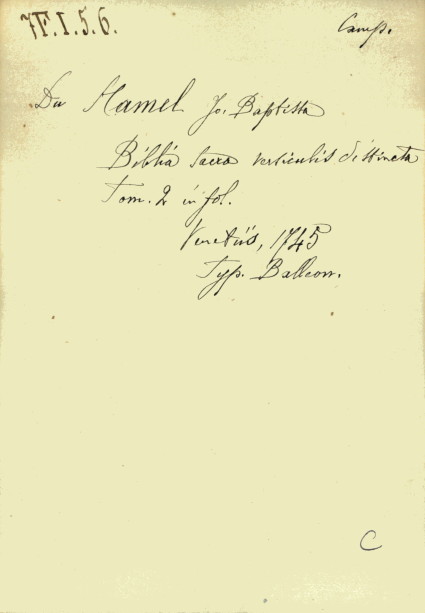 7F.I.5.6.
Camp.
Du Hamel Jo. Baptista
Biblia sacra versiculis distincta
Tom. 2 in fol.
Venetiis, 1745
Typ. Balleon.
C